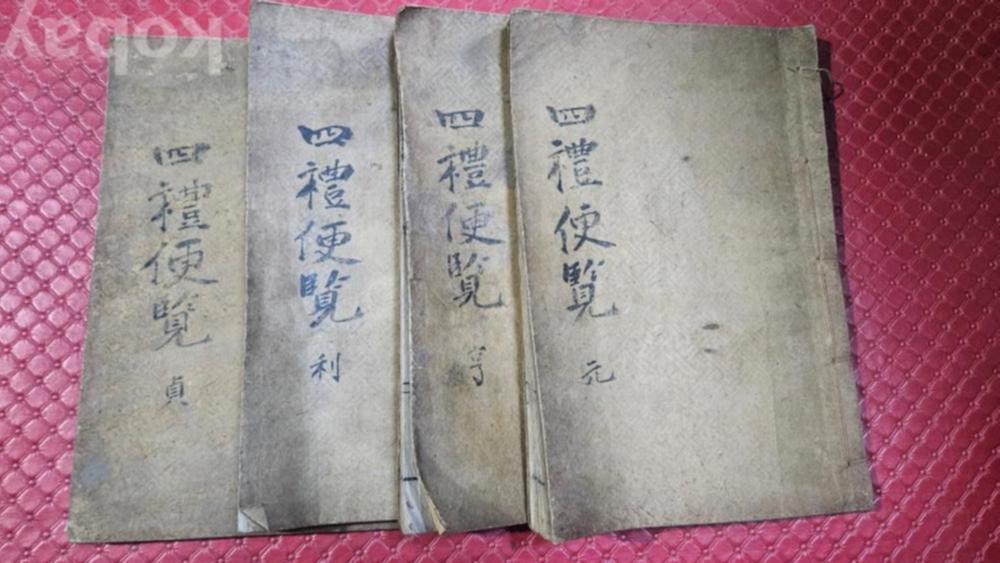 kobay
四禮便覽
元
四禮便覽
亨
四禮便覽
利
四禮便覽
貞